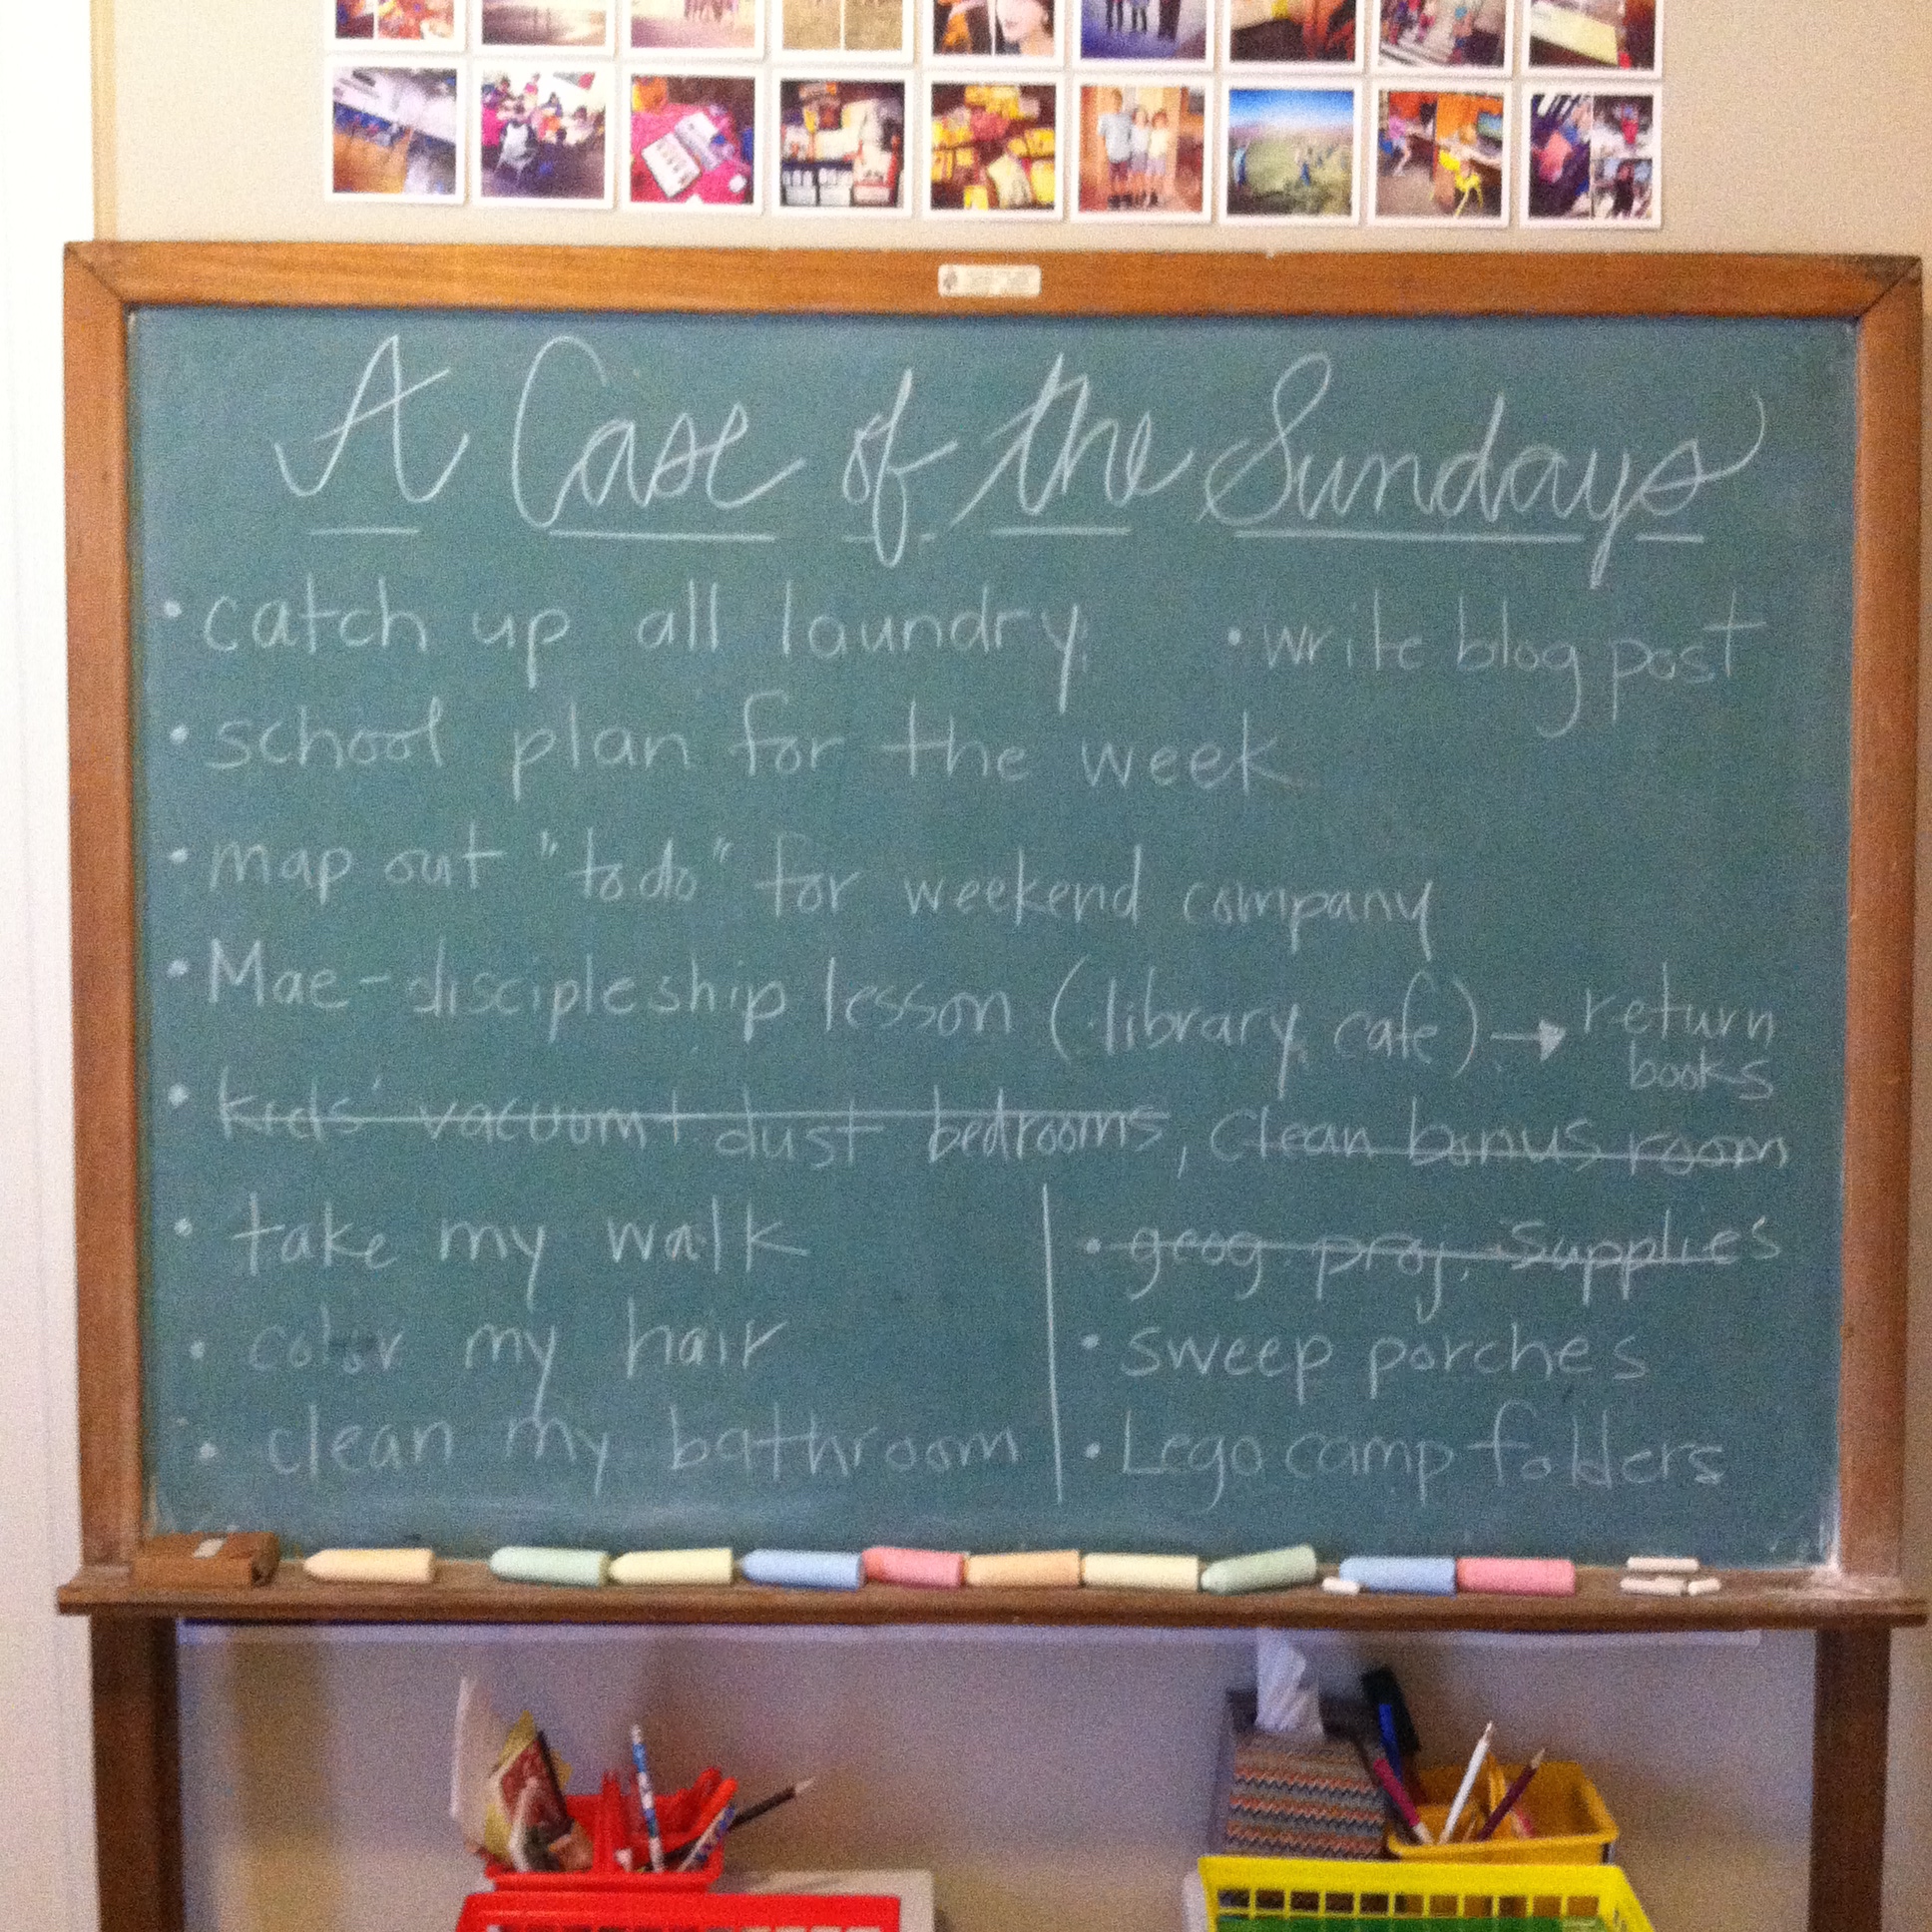 A Case of the Sundays
• catch up all laundry
• write blog post
• school plan for the week
• map out "to do" for weekend company
• Mae - discipleship lesson (library cafe) → return
books
• kids' vacuum + dust bedrooms, Clean bonus room
• take my walk
• color my hair
• clean my bathroom
• geog. proj. Supplies
• sweep porches
• Lego camp folders